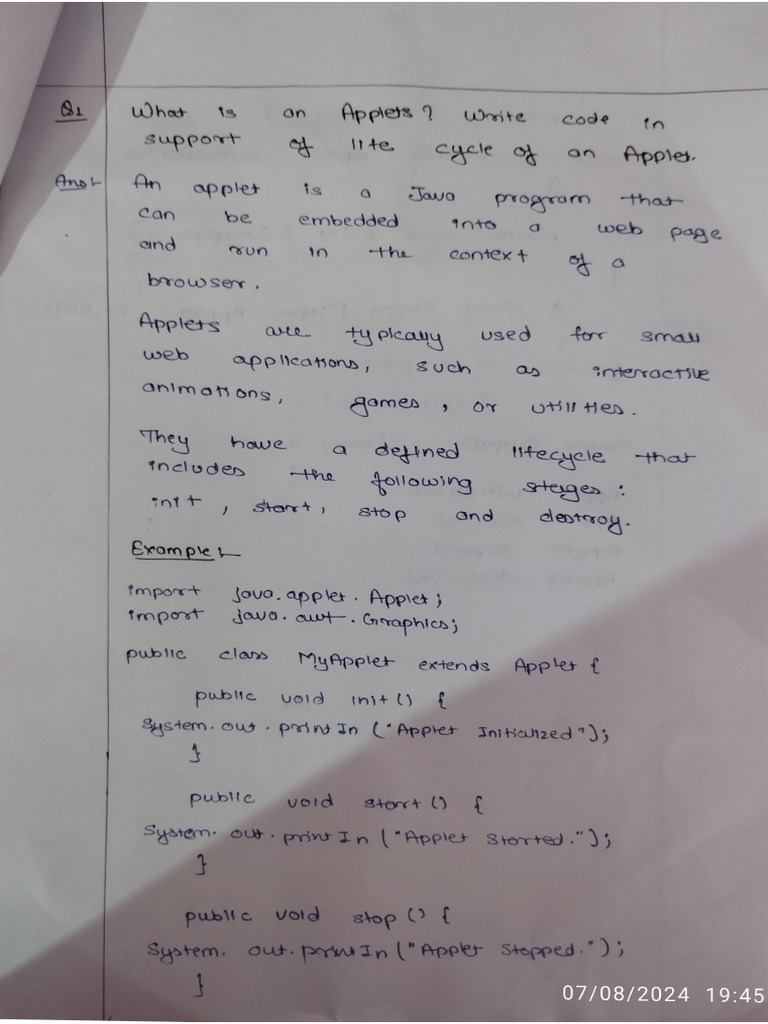 Q1 What is an Applets? Write code in
support of life cycle of an Applet.
Ans:- An applet is a Java program that
can be embedded into a web page
and run in the context of a
browser.
Applets are typically used for small
web applications, such as interactive
animations, games, or utilities.
They have a defined lifecycle that
includes the following stages:
init, start, stop and destroy.
Example:-
import java.applet.Applet;
import java.awt.Graphics;
public class MyApplet extends Applet {
public void init() {
System.out.printIn ("Applet Initialized");
}
public void start() {
System.out.printIn ("Applet Started.");
}
public void stop() {
System.out.printIn ("Applet Stopped.");
}
07/08/2024 19:45